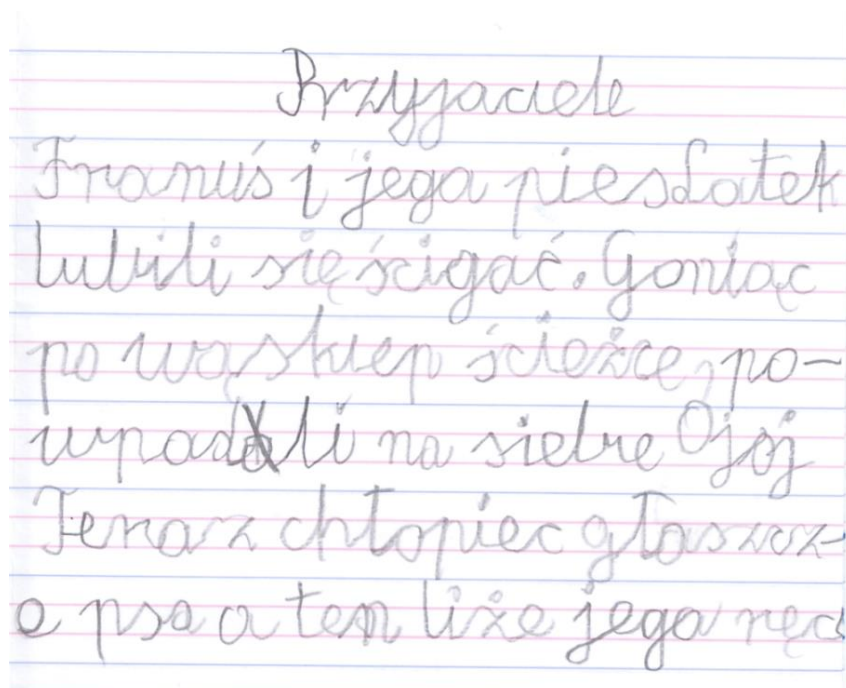 Przyjaciele
Franuś i jega pies Łatek
lubili się ścigać. Goniąc
po wąskiep ścieżce, po-
wpadali na siebie Ojoj
Teraz chłopiec głaszcz-
e psa a ten liże jega ręc